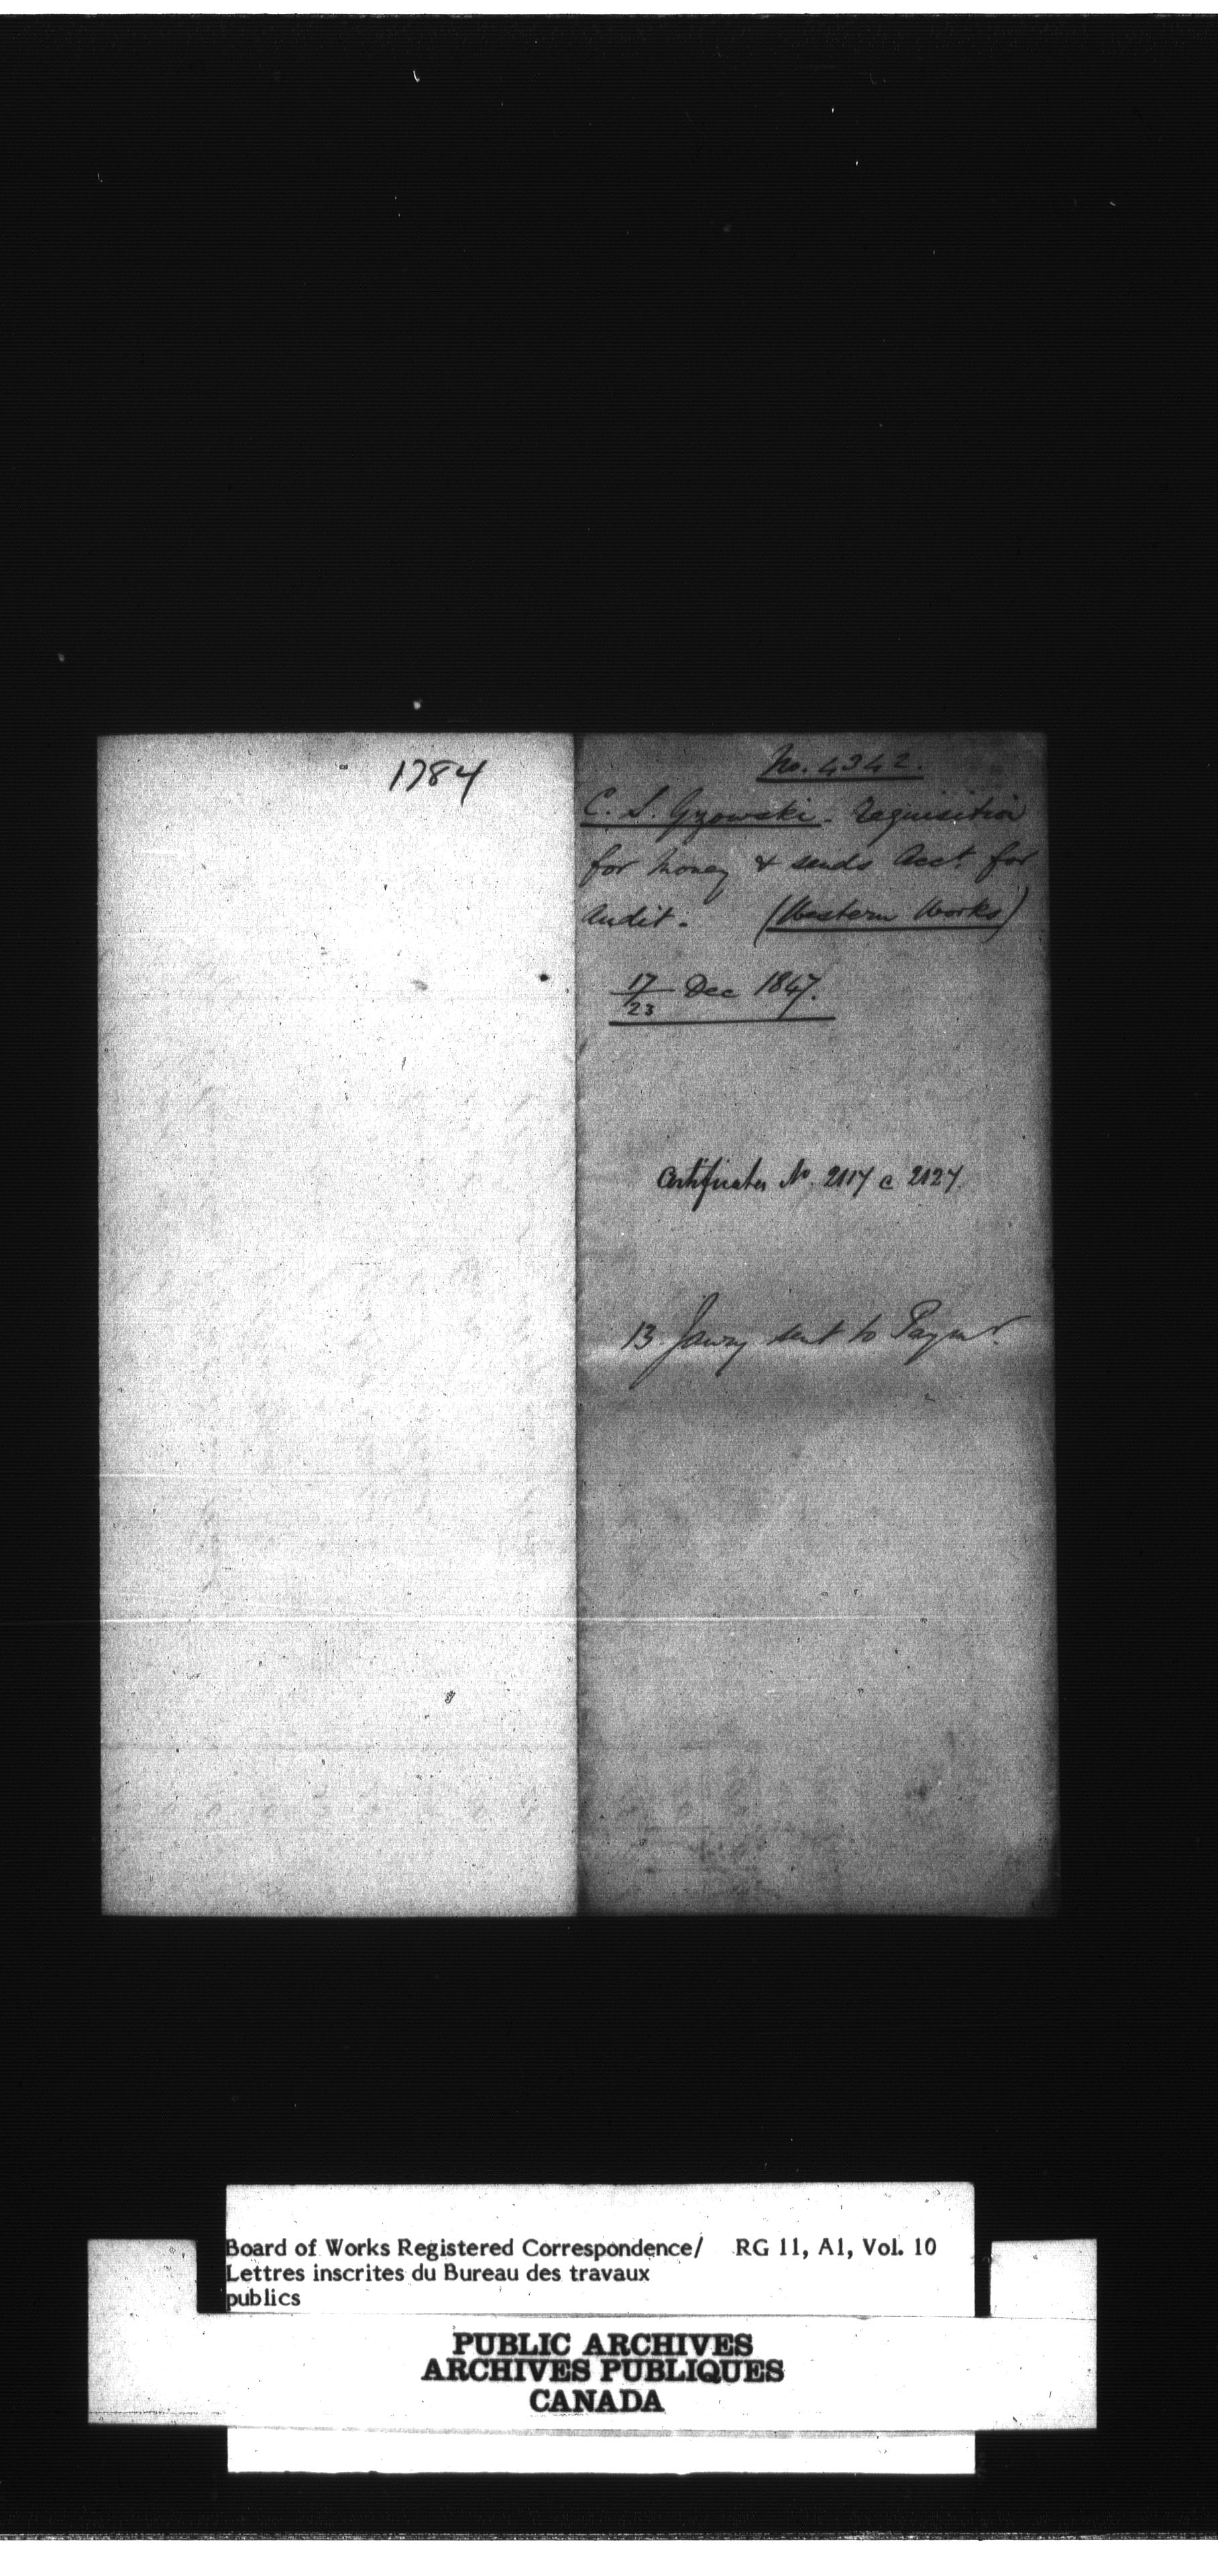 1784
No. 4342.
C. S. Gzowski - Requisition
for Money & sends Acct. for
Audit. (Western Works)
17/23 Dec 1847.
Certificates No. 2117 @ 2127
13 Jany sent to Paymr.
Board of Works Registered Correspondence/ RG 11, A1, Vol. 10
Lettres inscrites du Bureau des travaux
publics
PUBLIC ARCHIVES
ARCHIVES PUBLIQUES
CANADA